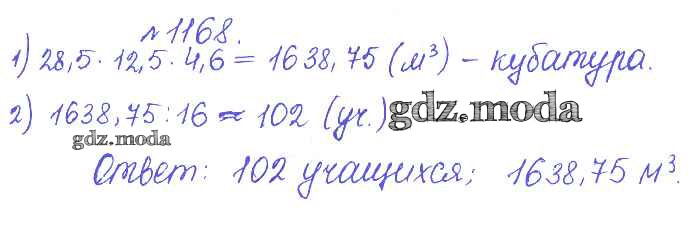 №1168.
1) 28,5 · 12,5 · 4,6 = 1638,75 (м³) – кубатура.
2) 1638,75 : 16 ≈ 102 (уч.) gdz.moda
gdz.moda
Ответ: 102 учащихся; 1638,75 м³.